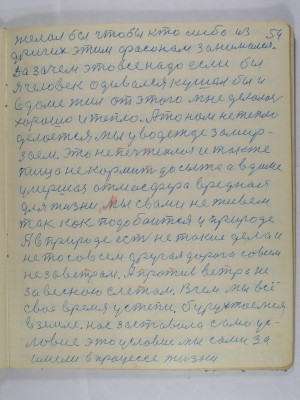 59
желал бы чтобы кто либо из
других этим фасонам занимался.
Да зачем это все надо если был
я человек одивался кушал бы и
в доме жил от этого мне делалось
хорошо и тепло. А то нам не тепло
делается мы у водежде замир-
заем, это не печ теплоя и также
пища не кормит до сыта а в доме
умершая атмосфера вредная
для жизни, мы с вами не живем
так как подобаится у природе
Я в природе есть не такие дела и
не то совсем другая дорога совсем
не за ветрам. А против ветра не
за весною слетам. В чем мы всё
свое время у степи, бурухтаемся
в земле. нас заставила само ус-
ловие это условие мы сами за
имели в процессе жизни